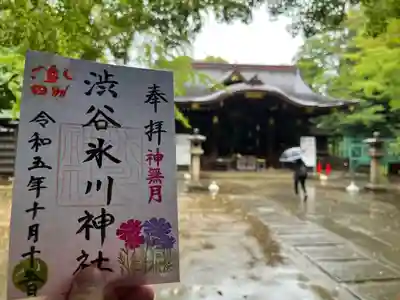 奉拝
神無月
渋谷氷川神社
令和五年十月十